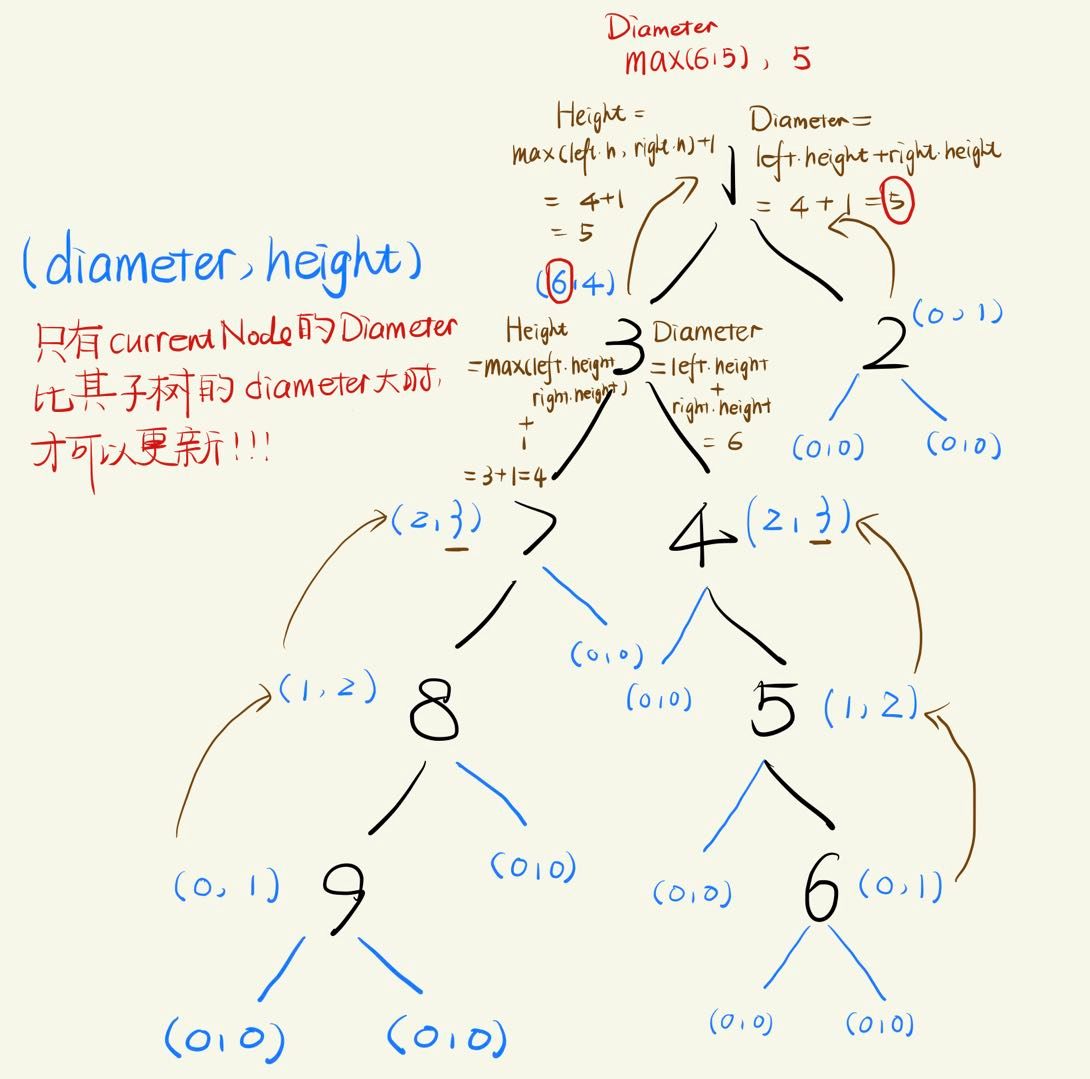 Diameter
max(6,5), 5
Height =
max(left.h, right.h)+1
= 4+1
= 5
Diameter=
left.height+right.height
= 4+1=5
1
(diameter, height)
只有currentNode的Diameter
比其子树的diameter大时,
才可以更新!!!
(6,4)
3
Height
=max(left.height,
right.height)
+
1
=3+1=4
Diameter
=left.height
+
right.height
= 6
2
(0,1)
(0,0)
(0,0)
(2,3)
7
4
(2,3)
(0,0)
(0,0)
(1,2)
8
5
(1,2)
(0,0)
(0,0)
(0,1)
9
6
(0,1)
(0,0)
(0,0)
(0,0)
(0,0)